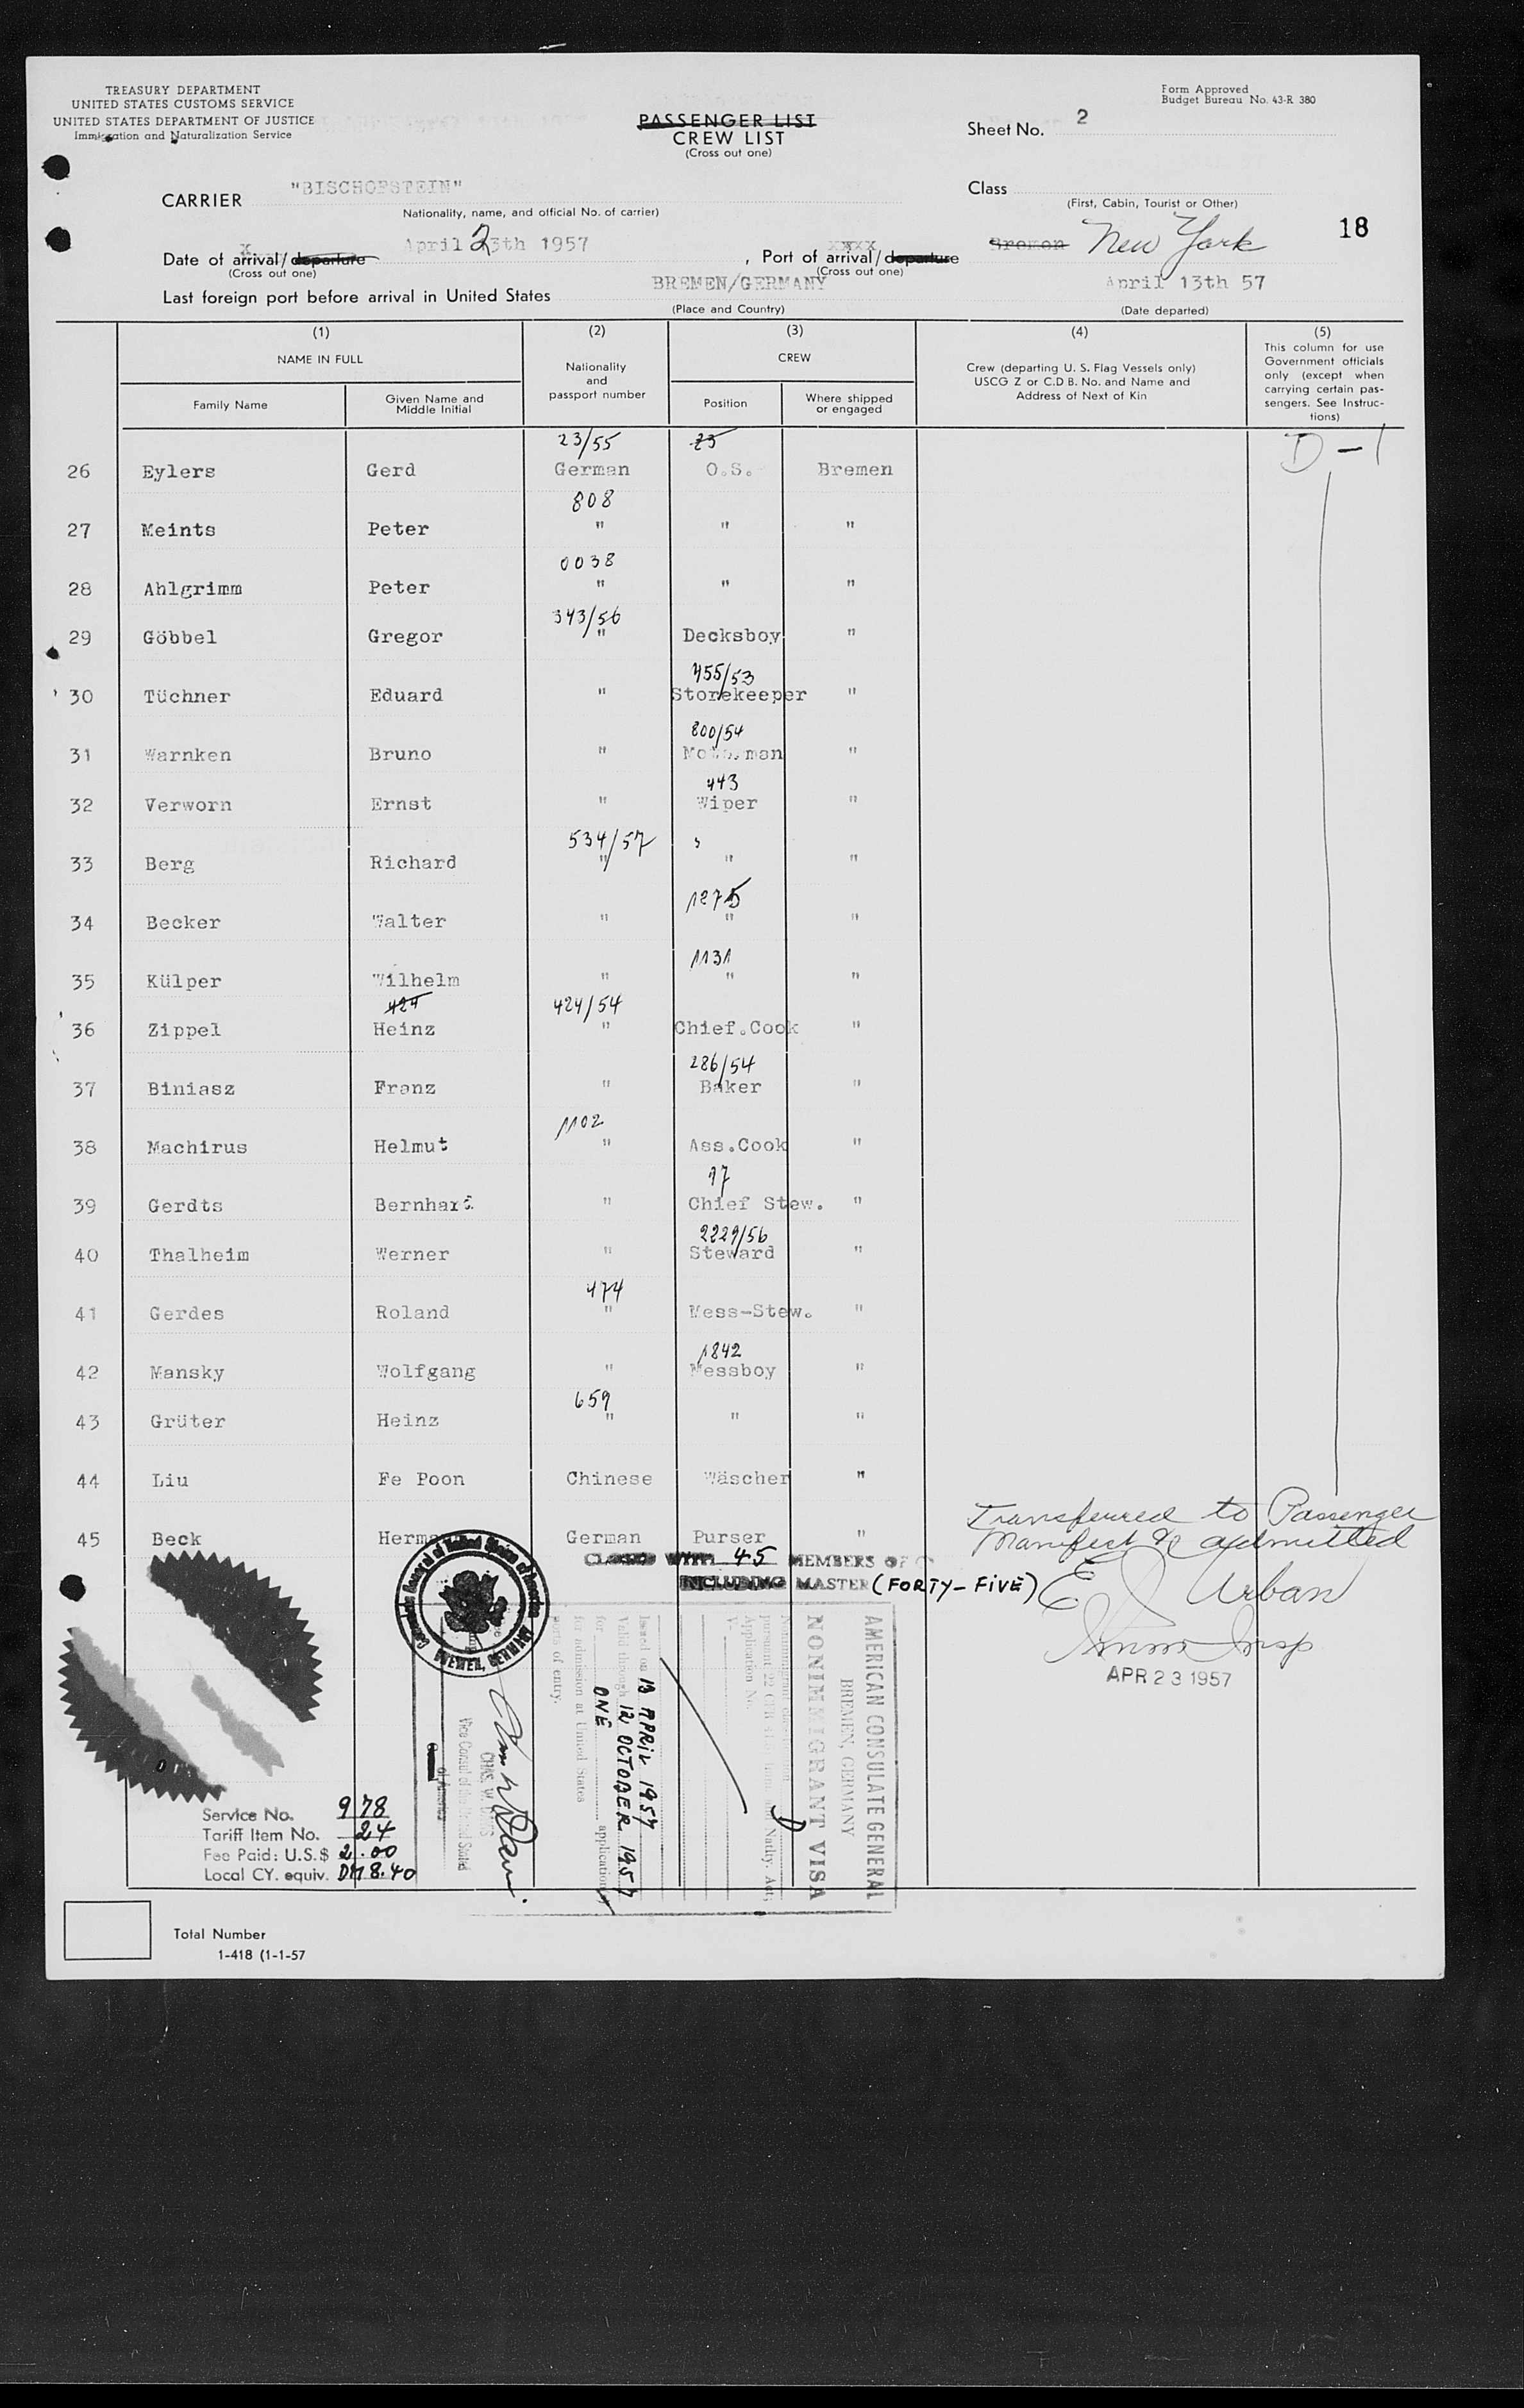 TREASURY DEPARTMENT
UNITED STATES CUSTOMS SERVICE
UNITED STATES DEPARTMENT OF JUSTICE
Immigration and Naturalization Service
PASSENGER LIST
CREW LIST
(Cross out one)
Form Approved
Budget Bureau No. 43-R 380
Sheet No. 2
CARRIER "BISCHOFSTEIN"
Nationality, name, and official No. of carrier)
Class
(First, Cabin, Tourist or Other)
18
Date of arrival/departure April 23th 1957
(Cross out one)
, Port of arrival/departure Bremen New York
(Cross out one)
Last foreign port before arrival in United States BREMEN/GERMANY April 13th 57
(Place and Country) (Date departed)
(1) (2) (3) (4) (5)
NAME IN FULL
Family Name
Given Name and Middle Initial
Nationality and passport number
CREW
Position
Where shipped or engaged
Crew (departing U. S. Flag Vessels only)
USCG Z or C.D B. No. and Name and
Address of Next of Kin
This column for use
Government officials
only (except when
carrying certain pas-
sengers. See Instruc-
tions)
23/55 23 D-1
26 Eylers Gerd German O.S. Bremen
808
27 Meints Peter " " "
0038
28 Ahlgrimm Peter " " "
343/56
29 Göbbel Gregor " Decksboy "
455/53
30 Tüchner Eduard " Storekeeper "
800/54
31 Warnken Bruno " Motorman "
443
32 Verworn Ernst " Wiper "
534/57
33 Berg Richard " " "
1275
34 Becker Walter " " "
1131
35 Külper Wilhelm " " "
424 424/54
36 Zippel Heinz " Chief.Cook "
286/54
37 Biniasz Franz " Baker "
1102
38 Machirus Helmut " Ass.Cook "
97
39 Gerdts Bernhard " Chief Stew. "
2229/56
40 Thalheim Werner " Steward "
474
41 Gerdes Roland " Mess-Stew. "
1842
42 Mansky Wolfgang " Messboy "
659
43 Grüter Heinz " " "
44 Liu Fe Poon Chinese Wäscher "
45 Beck Herma German Purser "
Transferred to Passenger
Manifest & admitted
CLOSED WITH 45 MEMBERS OF
INCLUDING MASTER (FORTY-FIVE)
E J Urban
Imm Insp
APR 23 1957
AMERICAN CONSULATE GENERAL
BREMEN, GERMANY
NONIMMIGRANT VISA
Application No.
V-
Issued on 13 APRIL 1957
Valid through 12 OCTOBER 1957
for ONE application
for admission at United States
ports of entry.
Vice Consul of the United States
of America
BREMEN, GERMANY
Service No. 978
Tariff Item No. 24
Fee Paid: U.S.$ 2.00
Local CY. equiv. DM 8.40
Total Number
1-418 (1-1-57